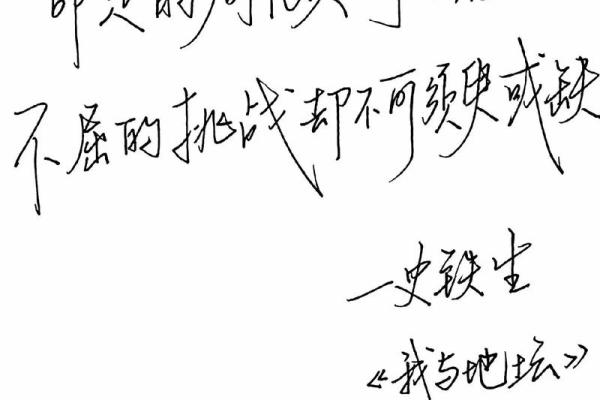 不屈的挑战却不可须臾或缺
—史铁生
《我与地坛》